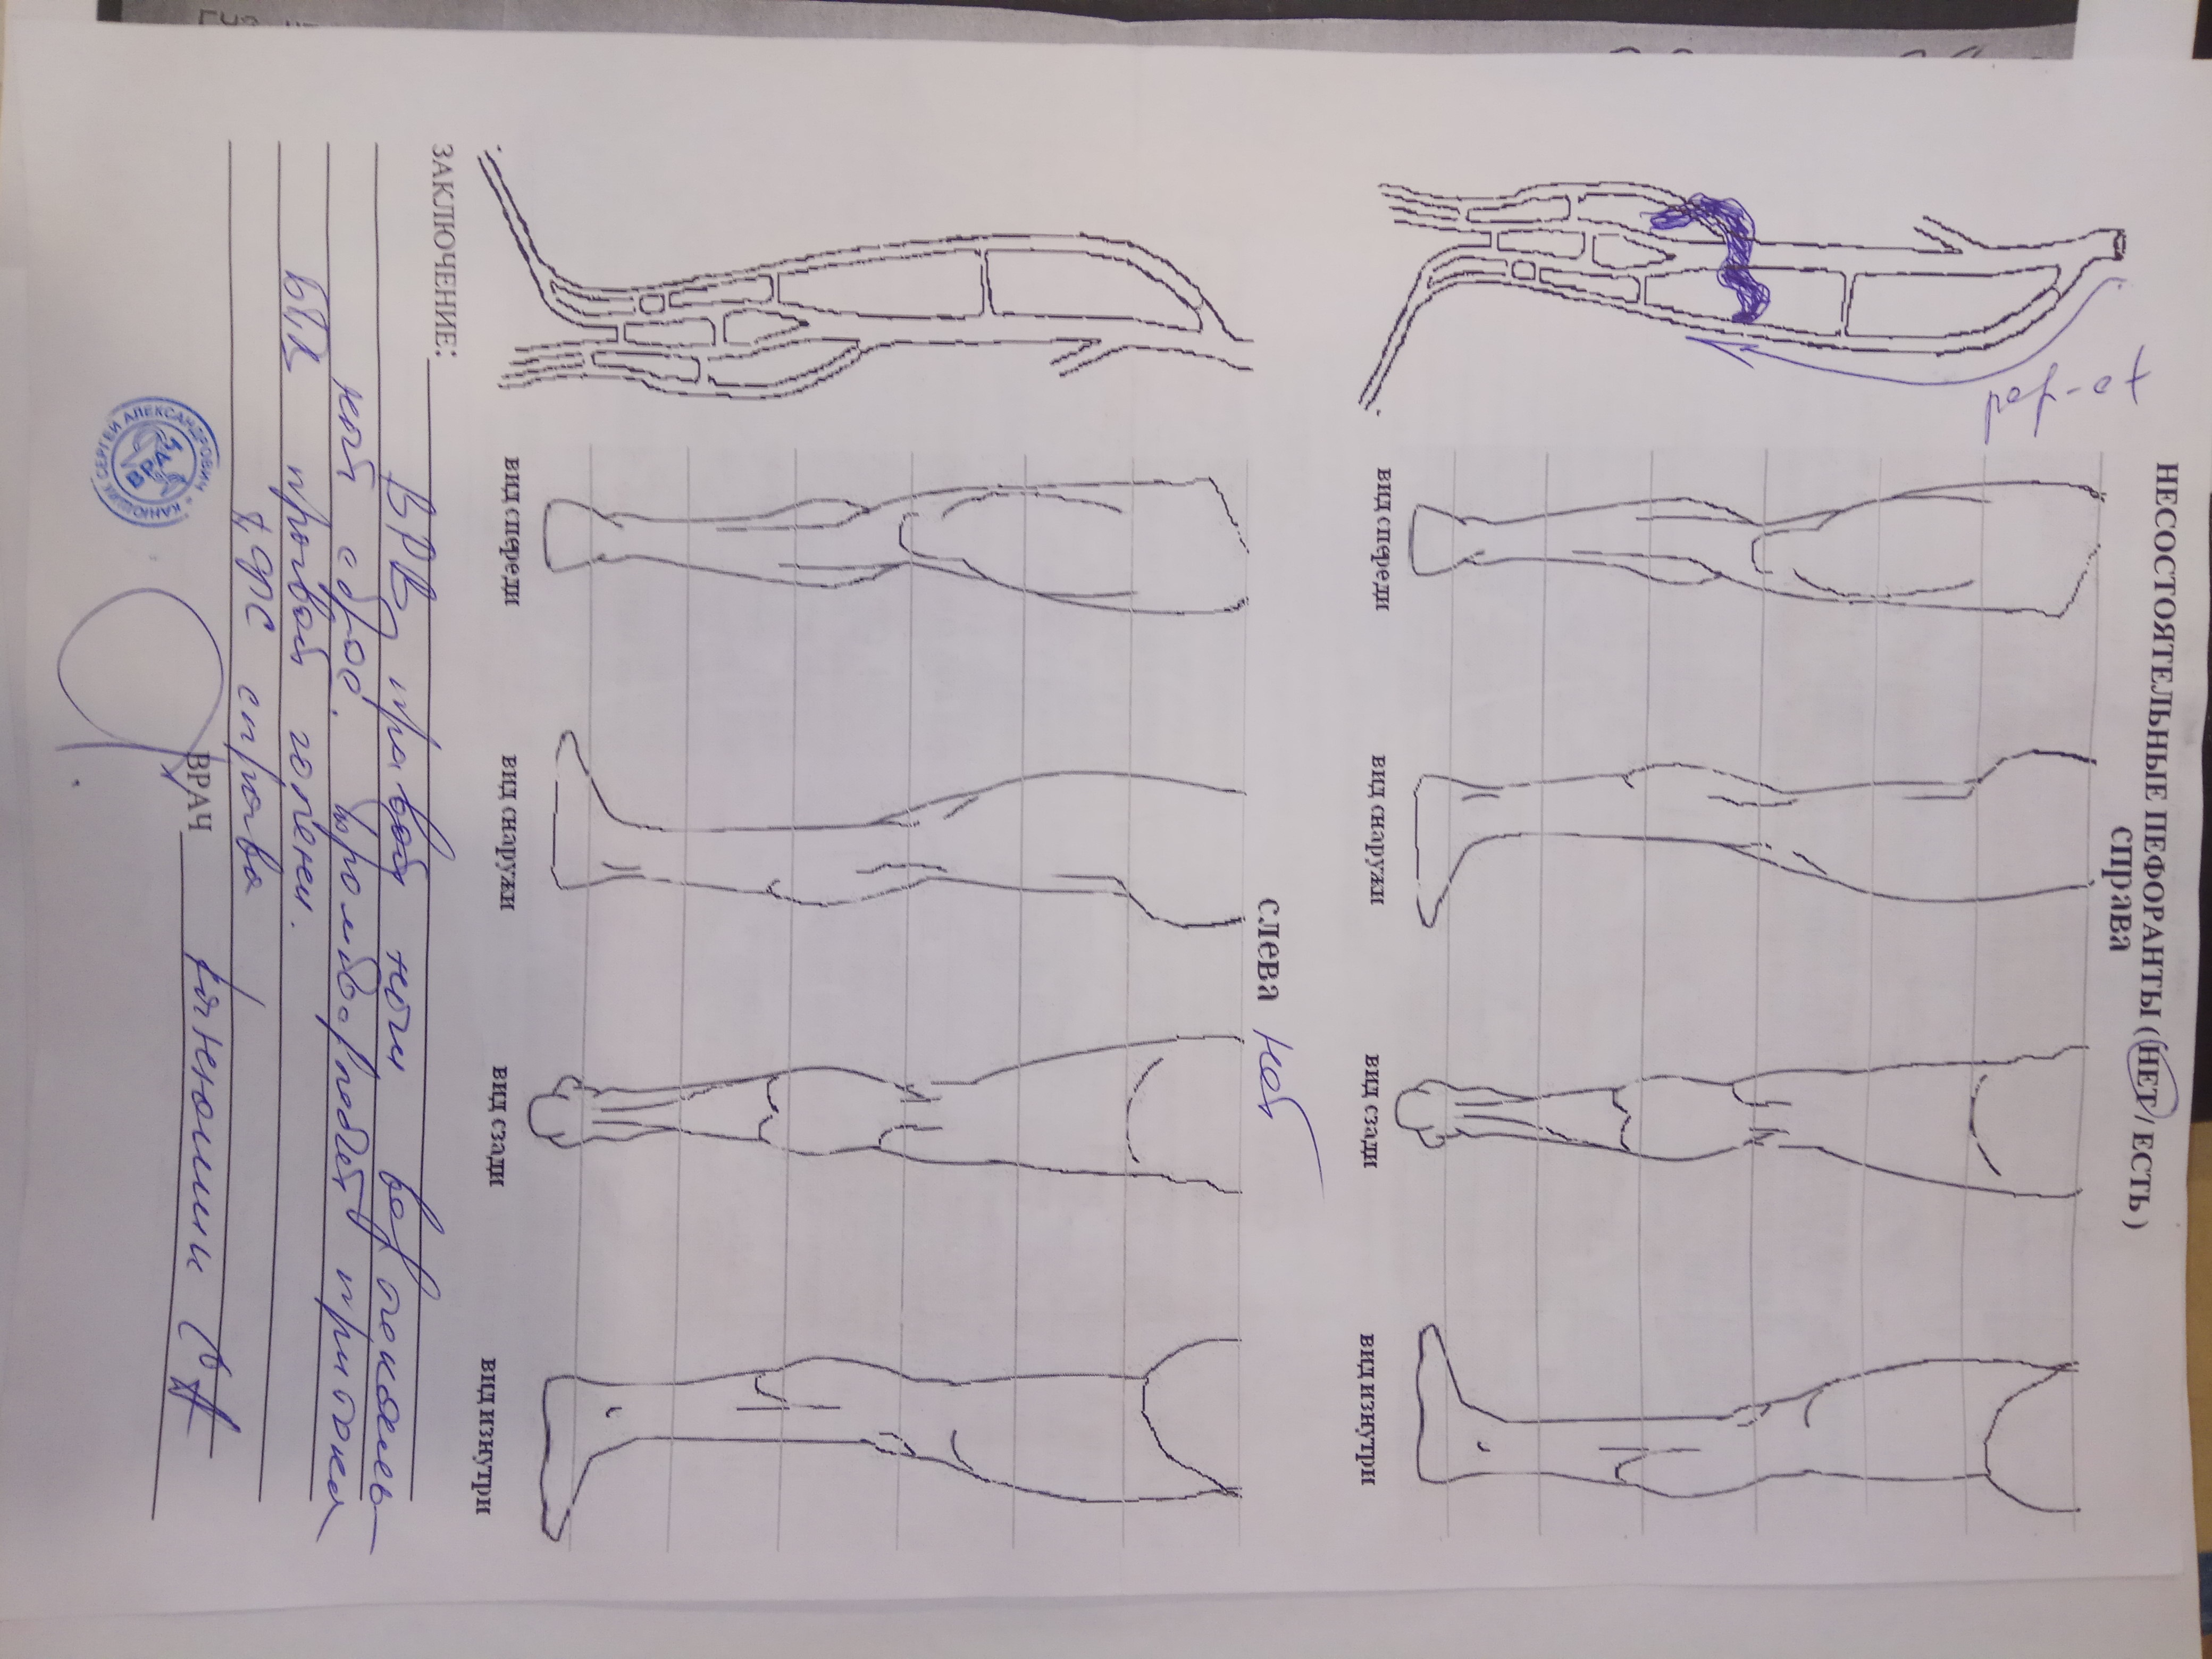 НЕСОСТОЯТЕЛЬНЫЕ ПЕФОРАНТЫ ( НЕТ / ЕСТЬ )
справа
вид спереди
вид снаружи
вид сзади
вид изнутри
слева нет
вид спереди
вид снаружи
вид сзади
вид изнутри
ЗАКЛЮЧЕНИЕ:
ВРВ правой ноги вертикаль-
ный сброс. Тромбофлебит притока
БПВ правой голени.
справа
ВРАЧ Канюшик СА
КАНЮШИК СЕРГЕЙ АЛЕКСАНДРОВИЧ
ВРАЧ